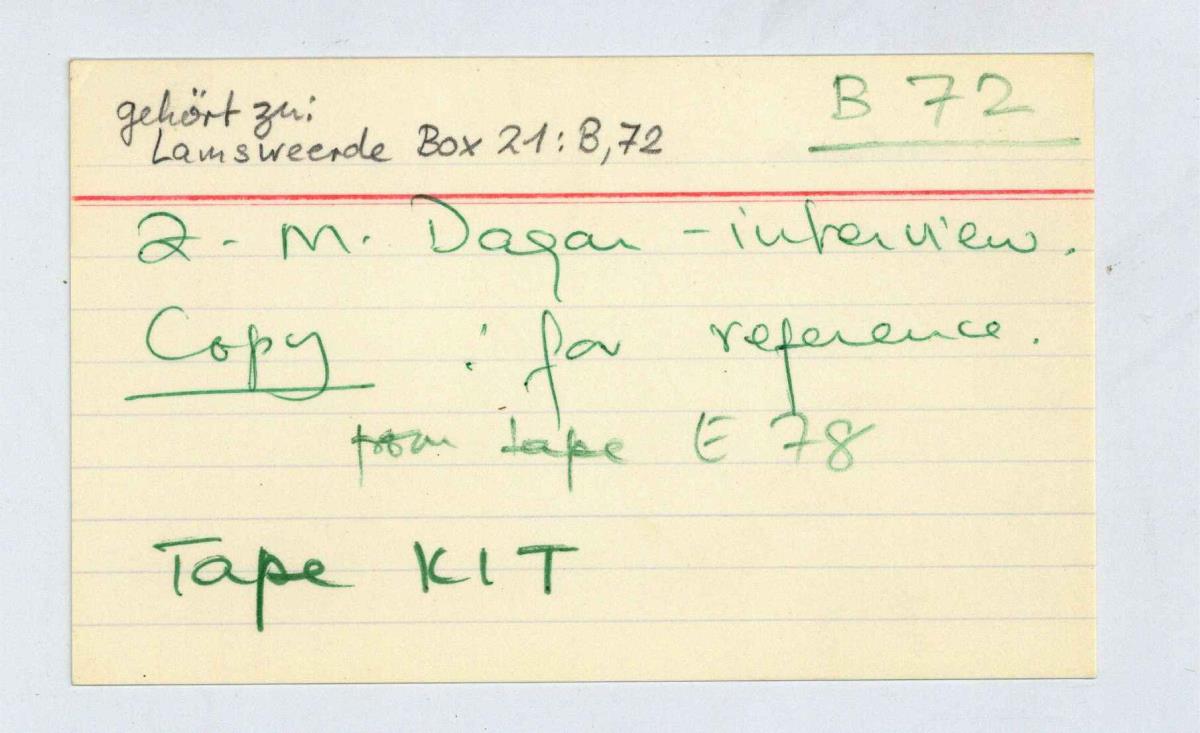 gehört zu:
Lamsweerde Box 21: B,72
B 72
Z. M. Dagar - interview.
Copy : for reference.
from tape E 78
Tape KIT